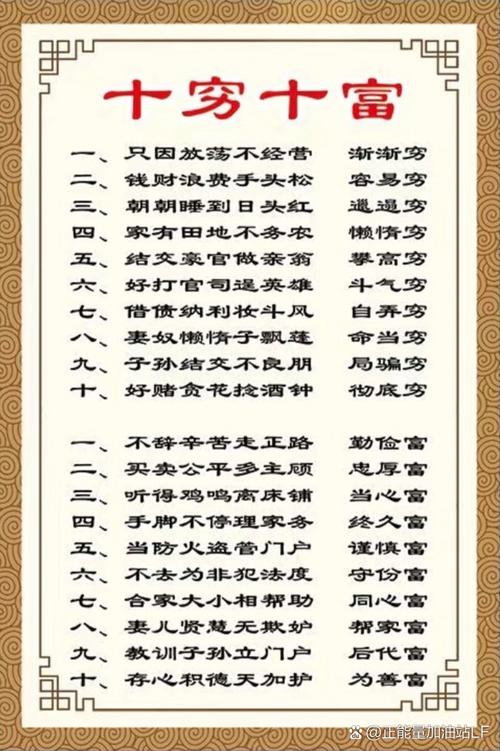 十穷十富
一、只因放荡不经营 渐渐穷
二、钱财浪费手头松 容易穷
三、朝朝睡到日头红 邋遢穷
四、家有田地不务农 懒惰穷
五、结交豪官做亲翁 攀高穷
六、好打官司逞英雄 斗气穷
七、借债纳利妆斗风 自弄穷
八、妻奴懒惰子飘蓬 命当穷
九、子孙结交不良朋 局骗穷
十、好赌贪花捻酒钟 彻底穷
一、不辞辛苦走正路 勤俭富
二、买卖公平多主顾 忠厚富
三、听得鸡鸣离床铺 当心富
四、手脚不停理家务 终久富
五、当防火盗管门户 谨慎富
六、不去为非犯法度 守份富
七、合家大小相帮助 同心富
八、妻儿贤慧无欺妒 帮家富
九、教训子孙立门户 后代富
十、存心积德天加护 为善富
@正能量加油站LF